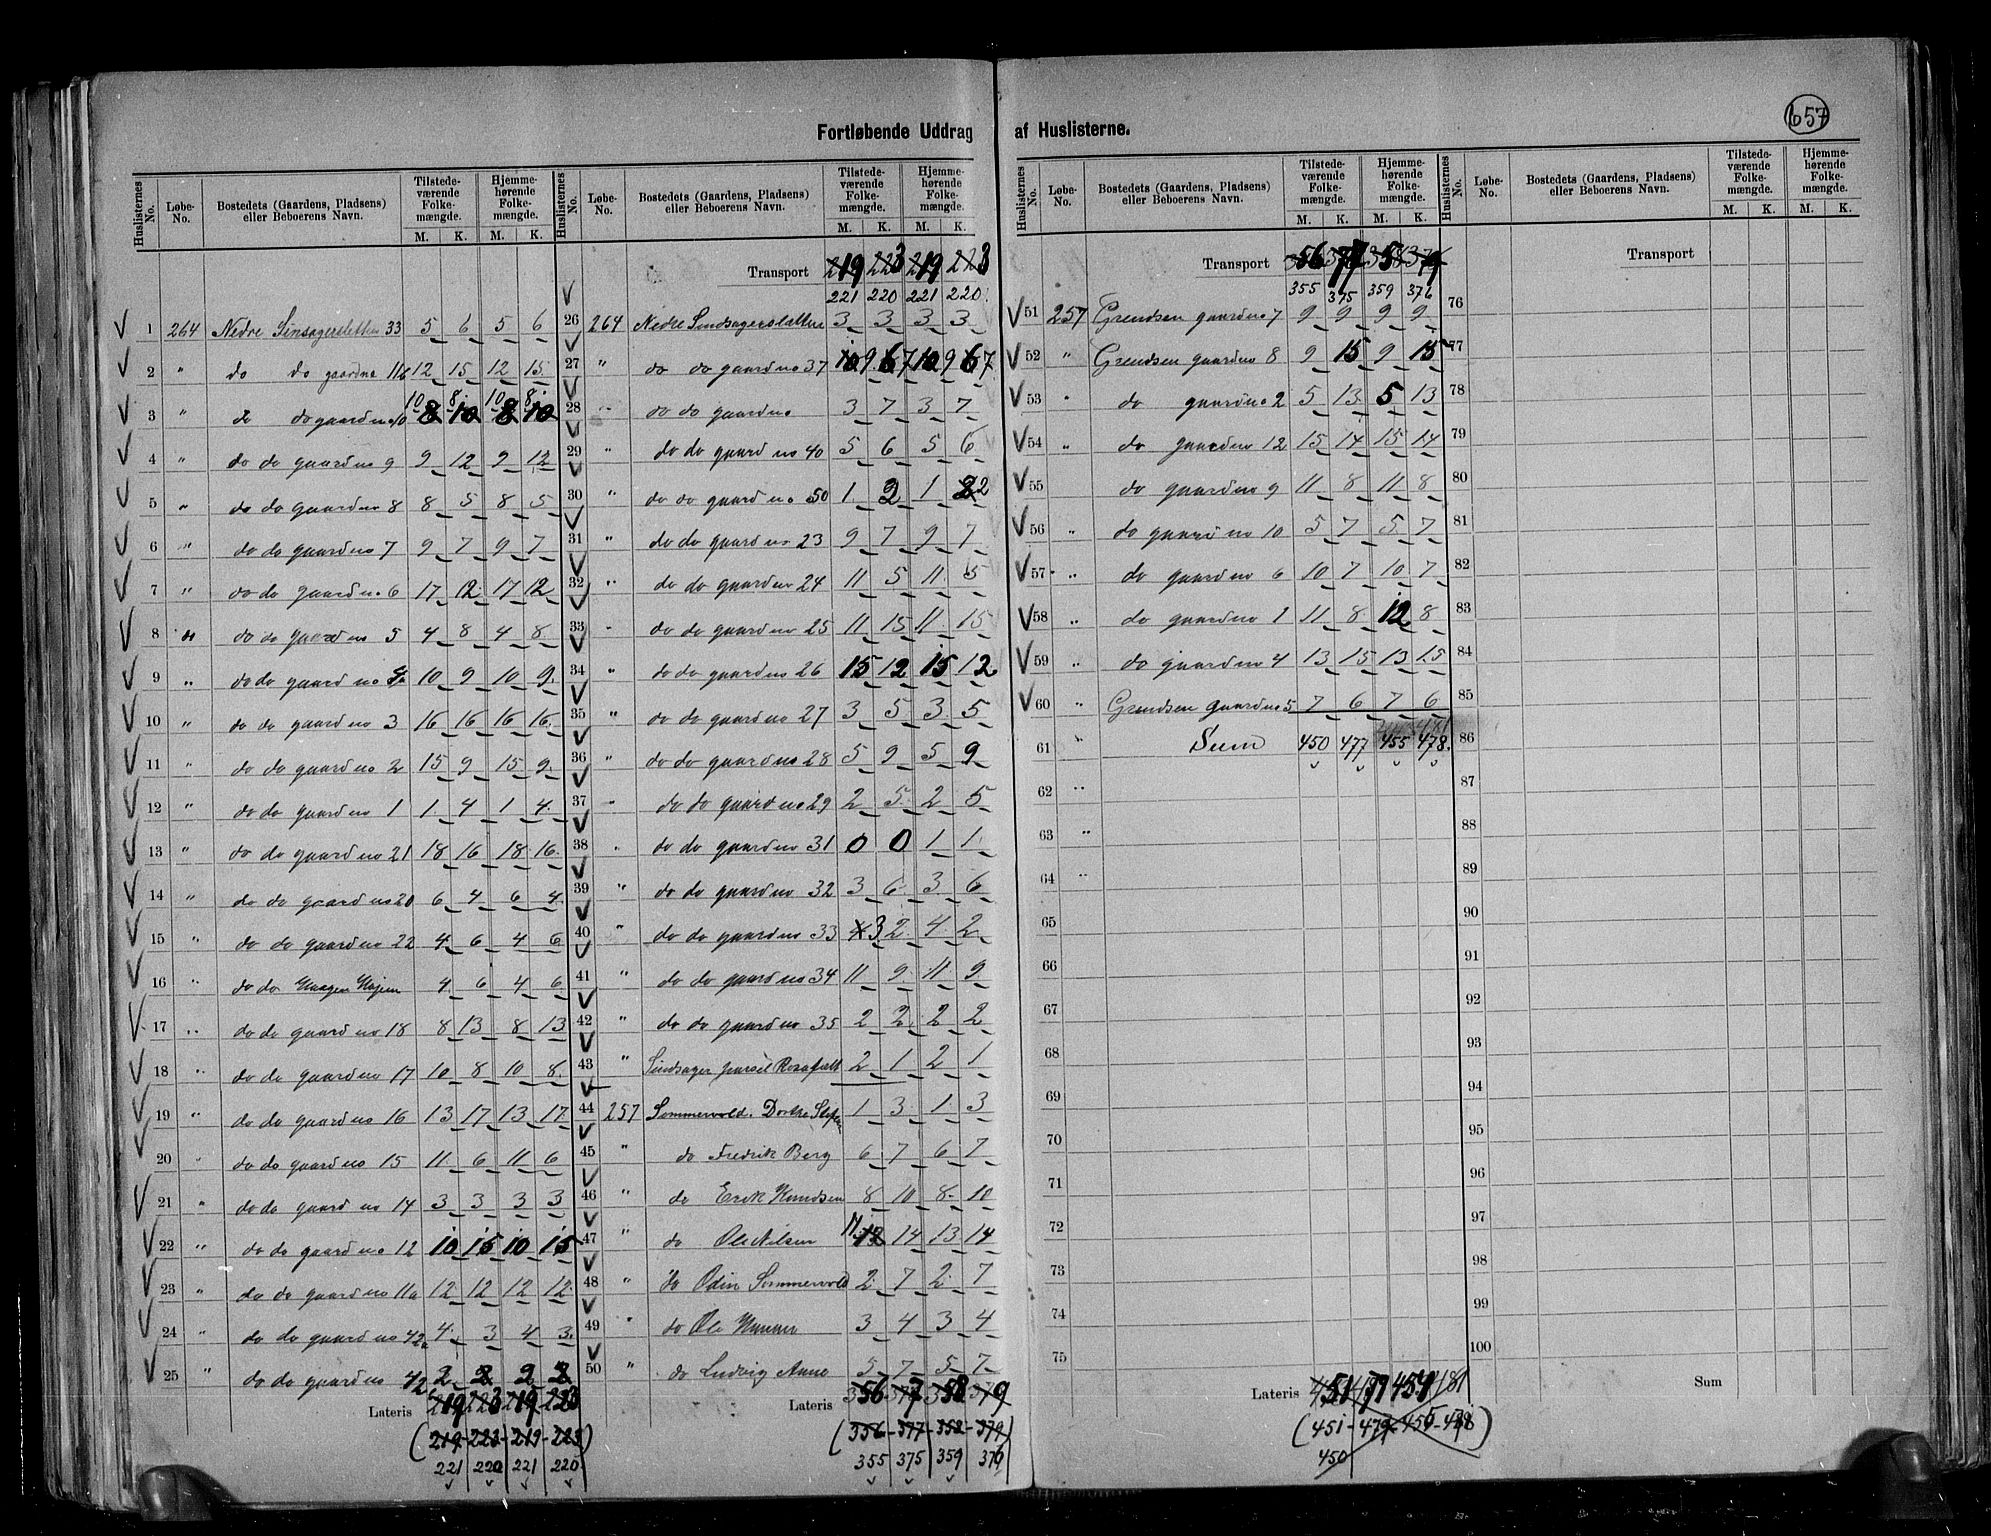 657
Fortløbende Uddrag af Huslisterne.
Huslisternes No. Løbe-No. Bostedets (Gaardens, Pladsens) eller Beboerens Navn. Tilstedeværende Folkemængde. M. K. Hjemmehørende Folkemængde. M. K.
1 264 Nedre Sinsagersletten 33 5 6 5 6
2 " do do gaardno 11b 12 15 12 15
3 " do do gaardno 10 10 8 10 8
4 " do do gaardno 9 9 12 9 12
5 " do do gaardno 8 8 5 8 5
6 " do do gaardno 7 9 7 9 7
7 " do do gaardno 6 17 12 17 12
8 do do do gaardno 5 4 8 4 8
9 " do do gaardno 10 9 10 9
10 " do do gaardno 3 16 16 16 16
11 " do do gaardno 2 15 9 15 9
12 " do do gaardno 1 1 4 1 4
13 " do do gaardno 21 18 16 18 16
14 " do do gaardno 20 6 4 6 4
15 " do do gaardno 22 4 6 4 6
16 " do do 4 6 4 6
17 " do do gaardno 18 8 13 8 13
18 " do do gaardno 17 10 8 10 8
19 " do do gaardno 16 13 17 13 17
20 " do do gaardno 15 11 6 11 6
21 " do do gaardno 14 3 3 3 3
22 " do do gaardno 12 10 15 10 15
23 " do do gaardno 11a 12 12 12 12
24 " do do gaardno 42a 4 3 4 3
25 " do do gaardno 42 2 2 2 2
Lateris 219 223 219 223
(219-223-219-223)
221 220 221 220
Huslisternes No. Løbe-No. Bostedets (Gaardens, Pladsens) eller Beboerens Navn. Tilstedeværende Folkemængde. M. K. Hjemmehørende Folkemængde. M. K.
Transport 219 223 219 223
221 220 221 220
26 264 Nedre Sindsagersletten 3 3 3 3
27 " do do gaardno 37 10 9 6 7 10 9 6 7
28 " do do gaardno 3 7 3 7
29 " do do gaardno 40 5 6 5 6
30 " do do gaardno 50 1 2 1 2
31 " do do gaardno 23 9 7 9 7
32 " do do gaardno 24 11 5 11 5
33 " do do gaardno 25 11 15 11 15
34 " do do gaardno 26 15 12 15 12
35 " do do gaardno 27 3 5 3 5
36 " do do gaardno 28 5 9 5 9
37 " do do gaardno 29 2 5 2 5
38 " do do gaardno 31 0 0 1 1
39 " do do gaardno 32 3 6 3 6
40 " do do gaardno 33 4 3 2 4 2
41 " do do gaardno 34 11 9 11 9
42 " do do gaardno 35 2 2 2 2
43 " Sindsager parsel 2 1 2 1
44 257 Sommervold. Dorthe 1 3 1 3
45 " do Fredrik Berg 6 7 6 7
46 " do Erik Knudsen 8 10 8 10
47 " do Ole Nilsen 14 13 14
48 " do Odin Sommervold 2 7 2 7
49 " do Ole 3 4 3 4
50 " do Ludvig 5 7 5 7
Lateris 356 377 358 379
(356-377-358-379)
355 375 359 376
Huslisternes No. Løbe-No. Bostedets (Gaardens, Pladsens) eller Beboerens Navn. Tilstedeværende Folkemængde. M. K. Hjemmehørende Folkemængde. M. K.
Transport 356 377 358 379
355 375 359 376
51 257 Grendsen gaardno 7 9 9 9 9
52 " Grendsen gaardno 8 9 15 9 15
53 " do gaardno 2 5 13 5 13
54 " do gaardno 12 15 14 15 14
55 do gaardno 9 11 8 11 8
56 " do gaardno 10 5 7 5 7
57 " do gaardno 6 10 7 10 7
58 " do gaardno 1 11 8 12 8
59 " do gaardno 4 13 15 13 15
60 " Grendsen gaardno 5 7 6 7 6
61 " Sum 450 477 455 478
62 "
63 "
64 "
65
66
67
68
69
70
71
72
73
74
75
Lateris 451 479 454 481
(451-479-455-478)
450
Huslisternes No. Løbe-No. Bostedets (Gaardens, Pladsens) eller Beboerens Navn. Tilstedeværende Folkemængde. M. K. Hjemmehørende Folkemængde. M. K.
Transport
76
77
78
79
80
81
82
83
84
85
86
87
88
89
90
91
92
93
94
95
96
97
98
99
100
Sum